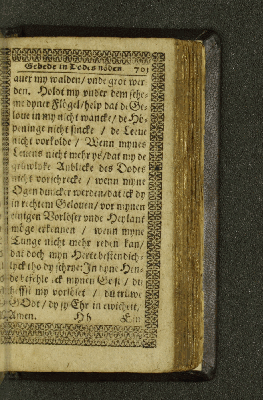 Gebede in Dodes nöden 701
auer my walden / vnde grot wer
den. Holdt my vnder dem sche-
me dyner Flögel / help dat de Ge-
loue in my nicht wancke / de Hö-
peninge nicht sincke / de Leeue
nicht vorkolde / Wenn mynes
Leuens nicht mehr ys / dat my de
grüwlyke Anblicke des Dodes
nicht vorschrecke / wenn myne
Ogen dunckel werden / dat ick dy
in rechtem Gelouen / vor mynen
einigen Vorlöser vnde Heylant
möge erkennen / wenn myne
Tunge nicht mehr reden kan /
dat doch myn Herte bestendich-
lyck tho dy schrye: In dyne Hen-
de befehle ick mynen Geist / du
heffst my vorlöset / du trüwe
GOdt / dy sy Ehr in ewicheit /
Amen. Hh Ein